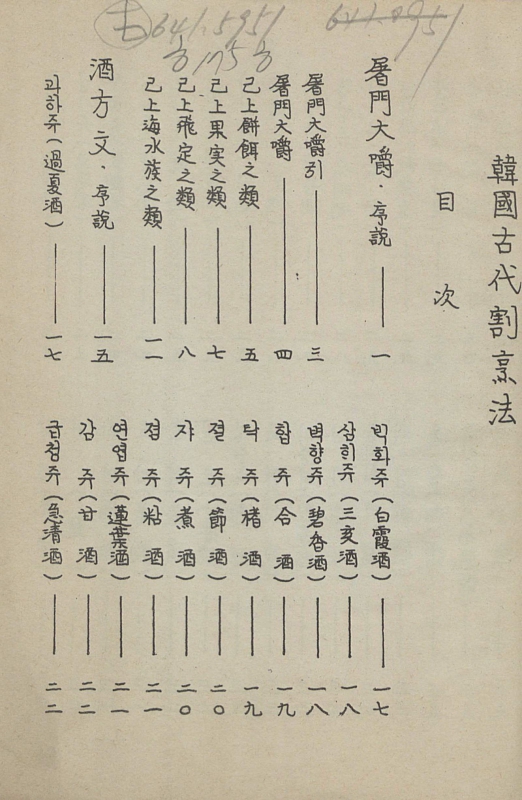 641.5951
韓國古代割烹法
目次
屠門大嚼·序說 一
屠門大嚼引 三
屠門大嚼 四
已上餠餌之類 五
已上果実之類 七
已上飛走之類 八
已上海水族之類 一一
酒方文·序說 一五
과하쥬(過夏酒) 一七
빅화쥬(白霞酒) 一七
삼희쥬(三亥酒) 一八
벽향쥬(碧香酒) 一八
합쥬(合酒) 一九
탁쥬(楮酒) 一九
졀쥬(節酒) 二〇
쟈쥬(煮酒) 二〇
졈쥬(粘酒) 二一
연엽쥬(蓮葉酒) 二一
감쥬(甘酒) 二二
급쳥쥬(急清酒) 二二